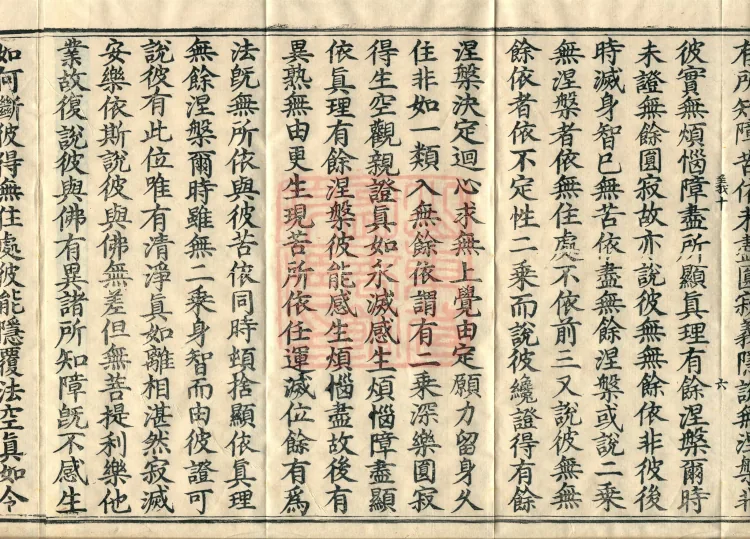 有所知障苦依未盡圓寂義隱說無涅槃非
六
彼實無煩惱障盡所顯眞理有餘涅槃爾時
未證無餘圓寂故亦說彼無無餘依非彼後
時滅身智已無苦依盡無餘涅槃或說二乘
無涅槃者依無住處不依前三又說彼無無
餘依者依不定性二乘而說彼纔證得有餘
涅槃決定迴心求無上覺由定願力留身久
住非如一類入無餘依謂有二乘深樂圓寂
得生空觀親證眞如永滅感生煩惱障盡顯
依眞理有餘涅槃彼能感生煩惱盡故後有
異熟無由更生現苦所依任運滅位餘有為
法旣無所依與彼苦依同時頓捨顯依眞理
無餘涅槃爾時雖無二乘身智而由彼證可
說彼有此位唯有清淨眞如離相湛然寂滅
安樂依斯說彼與佛無差但無菩提利樂他
業故復說彼與佛有異諸所知障旣不感生
如何斷彼得無住處彼能隱覆法空眞如令